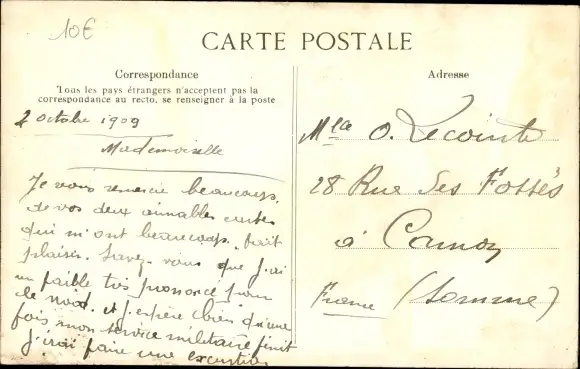 10€
CARTE POSTALE
Correspondance
Tous les pays étrangers n'acceptent pas la
correspondance au recto, se renseigner à la poste
Adresse
2 octobre 1909
Mademoiselle
Je vous remercie beaucoup,
de vos deux aimables cartes
qui m'ont beaucoup fait
plaisir. Savez-vous que j'ai
un faible très prononcé pour
le nord. et j'espère bien qu'une
fois mon service militaire finit
j'irai faire une excursion
Mlle O. Lecointe
28 Rue des Fossés
à
France (Somme)